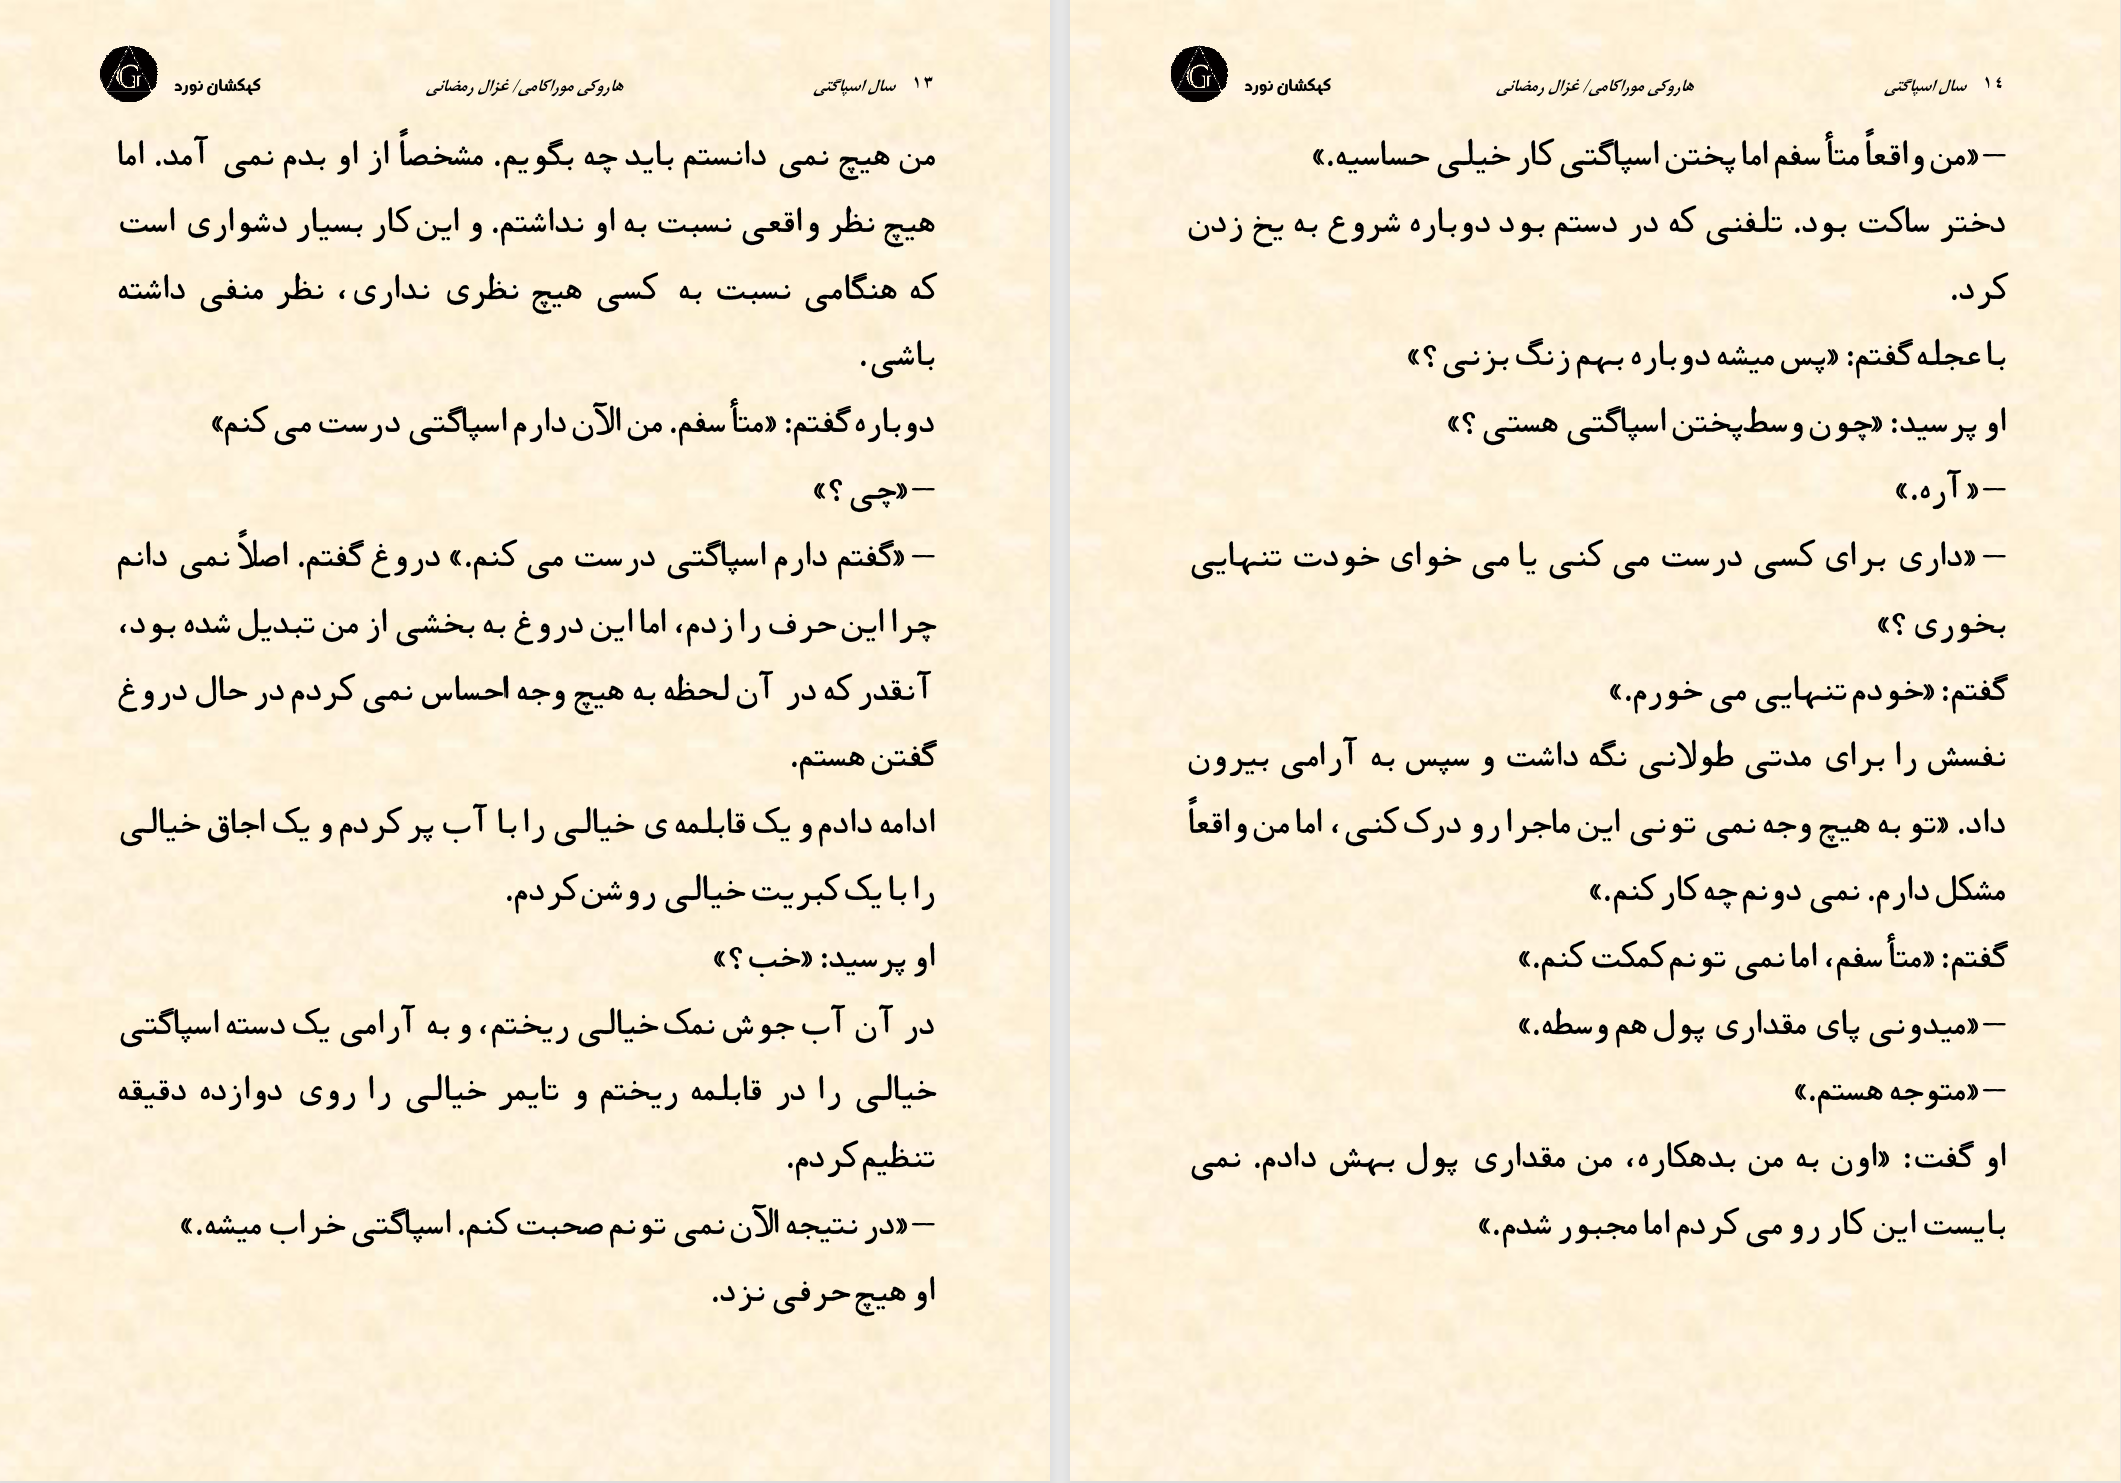 ۱۳ سال اسپاگتی هاروکی موراکامی/ غزال رمضانی کهکشان نورد Gr
من هیچ نمی دانستم باید چه بگویم. مشخصاً از او بدم نمی آمد. اما
هیچ نظر واقعی نسبت به او نداشتم. و این کار بسیار دشواری است
که هنگامی نسبت به کسی هیچ نظری نداری، نظر منفی داشته
باشی.
دوباره گفتم: «متأسفم. من الآن دارم اسپاگتی درست می کنم»
–«چی؟»
–«گفتم دارم اسپاگتی درست می کنم.» دروغ گفتم. اصلاً نمی دانم
چرا این حرف را زدم، اما این دروغ به بخشی از من تبدیل شده بود،
آنقدر که در آن لحظه به هیچ وجه احساس نمی کردم در حال دروغ
گفتن هستم.
ادامه دادم و یک قابلمه ی خیالی را با آب پر کردم و یک اجاق خیالی
را با یک کبریت خیالی روشن کردم.
او پرسید: «خب؟»
در آن آب جوش نمک خیالی ریختم، و به آرامی یک دسته اسپاگتی
خیالی را در قابلمه ریختم و تایمر خیالی را روی دوازده دقیقه
تنظیم کردم.
–«در نتیجه الآن نمی تونم صحبت کنم. اسپاگتی خراب میشه.»
او هیچ حرفی نزد.
۱٤ سال اسپاگتی هاروکی موراکامی/ غزال رمضانی کهکشان نورد Gr
–«من واقعاً متأسفم اما پختن اسپاگتی کار خیلی حساسیه.»
دختر ساکت بود. تلفنی که در دستم بود دوباره شروع به یخ زدن
کرد.
با عجله گفتم: «پس میشه دوباره بهم زنگ بزنی؟»
او پرسید: «چون وسط پختن اسپاگتی هستی؟»
–« آره.»
–«داری برای کسی درست می کنی یا می خوای خودت تنهایی
بخوری؟»
گفتم: «خودم تنهایی می خورم.»
نفسش را برای مدتی طولانی نگه داشت و سپس به آرامی بیرون
داد. «تو به هیچ وجه نمی تونی این ماجرا رو درک کنی، اما من واقعاً
مشکل دارم. نمی دونم چه کار کنم.»
گفتم: «متأسفم، اما نمی تونم کمکت کنم.»
–«میدونی پای مقداری پول هم وسطه.»
–«متوجه هستم.»
او گفت: «اون به من بدهکاره، من مقداری پول بهش دادم. نمی
بایست این کار رو می کردم اما مجبور شدم.»